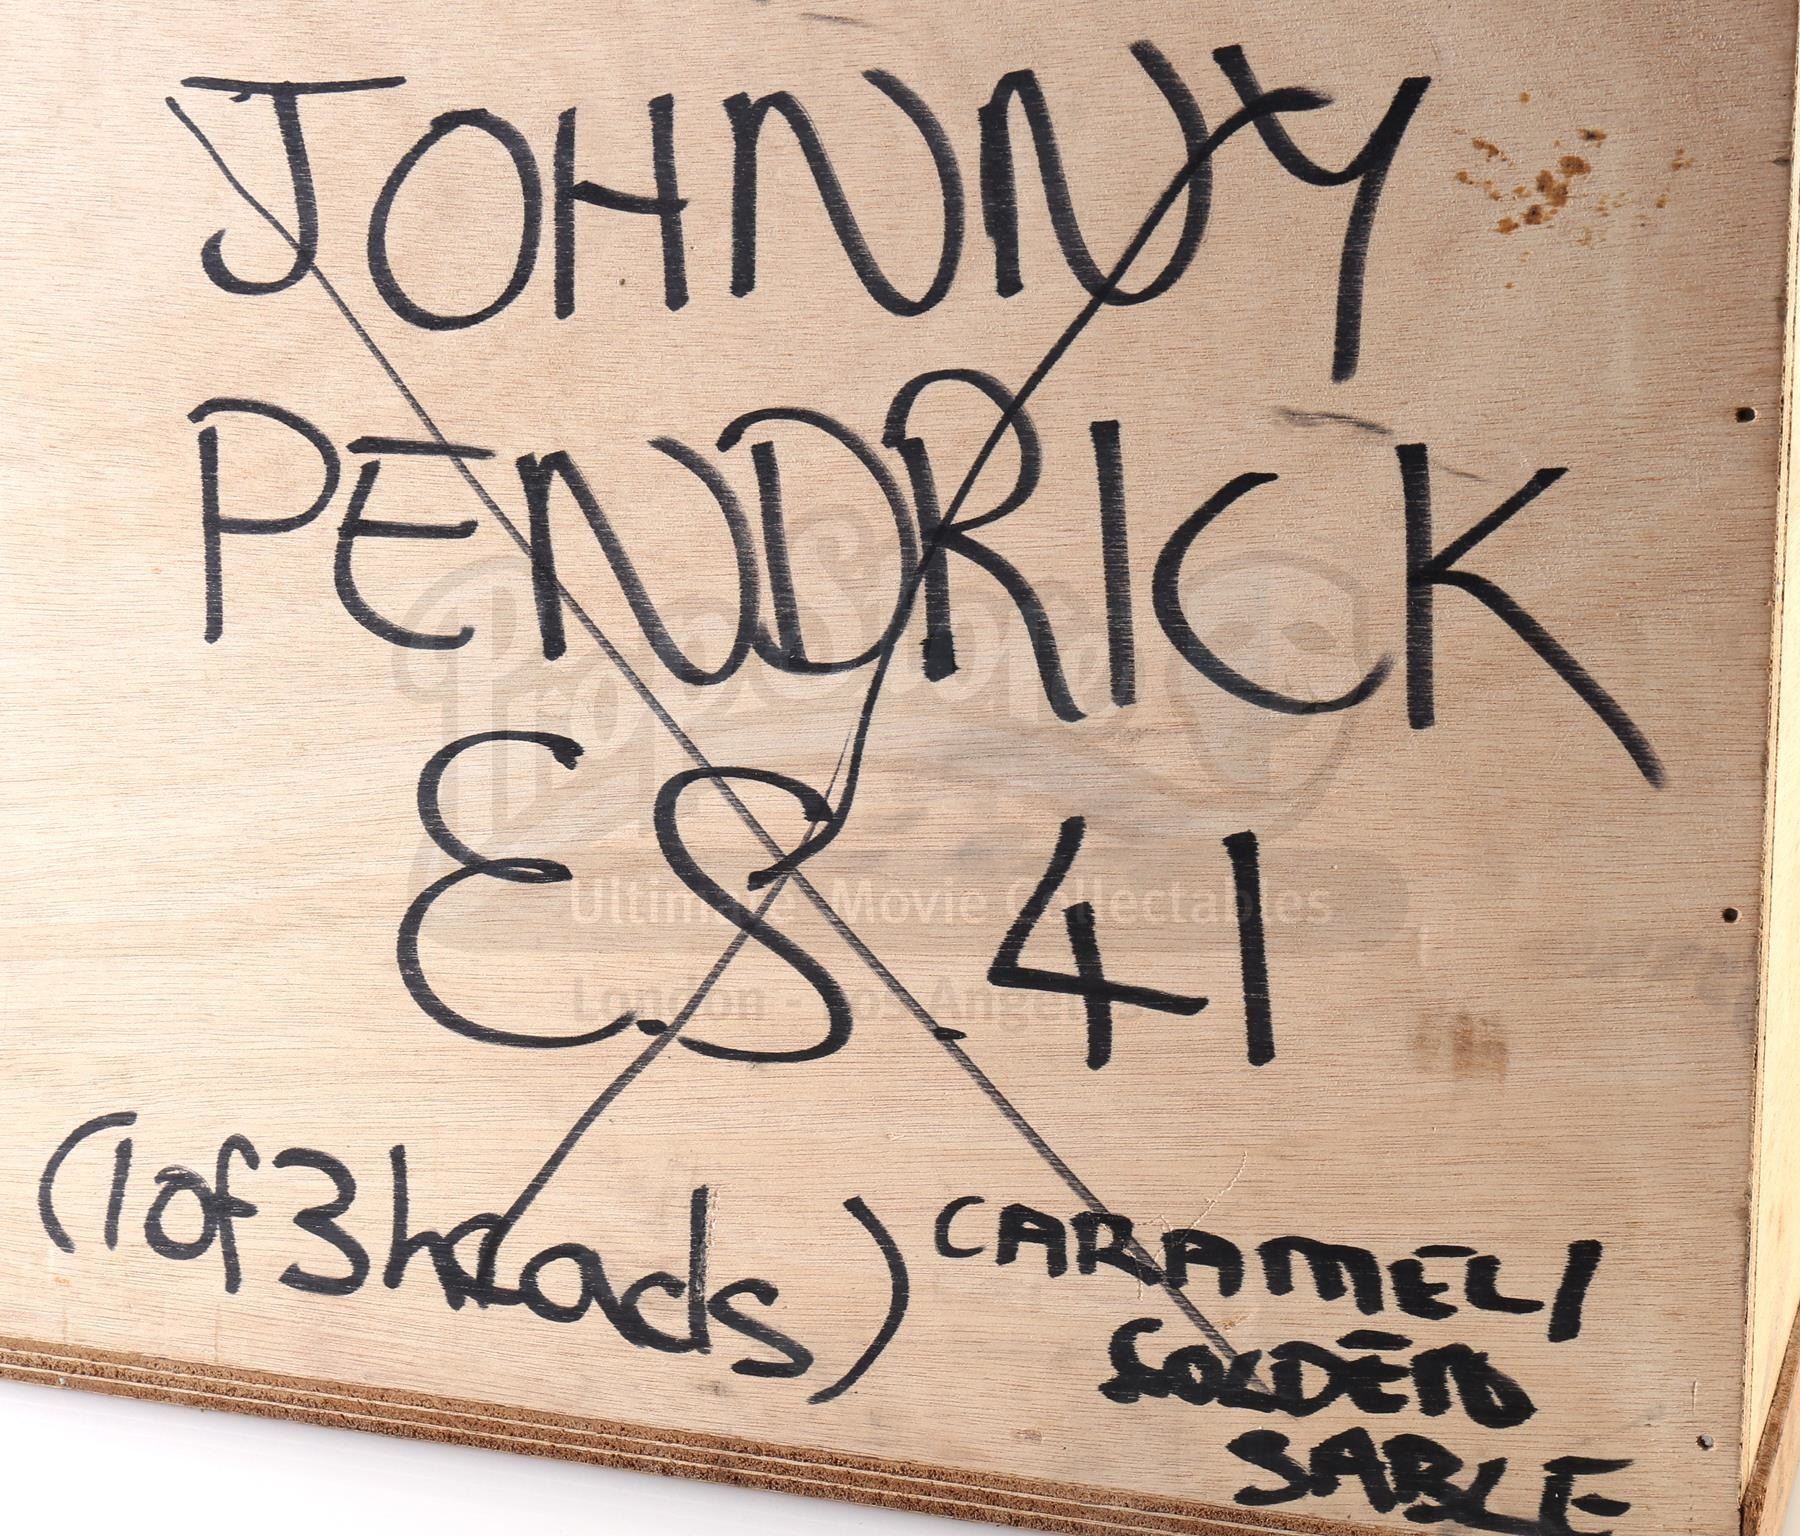 JOHNNY
PENDRICK
E.S. 41
(1 of 3 heads) CARAMEL/
GOLDEN
SABLE
PropStore
Ultimate Movie Collectables
London - Los Angeles